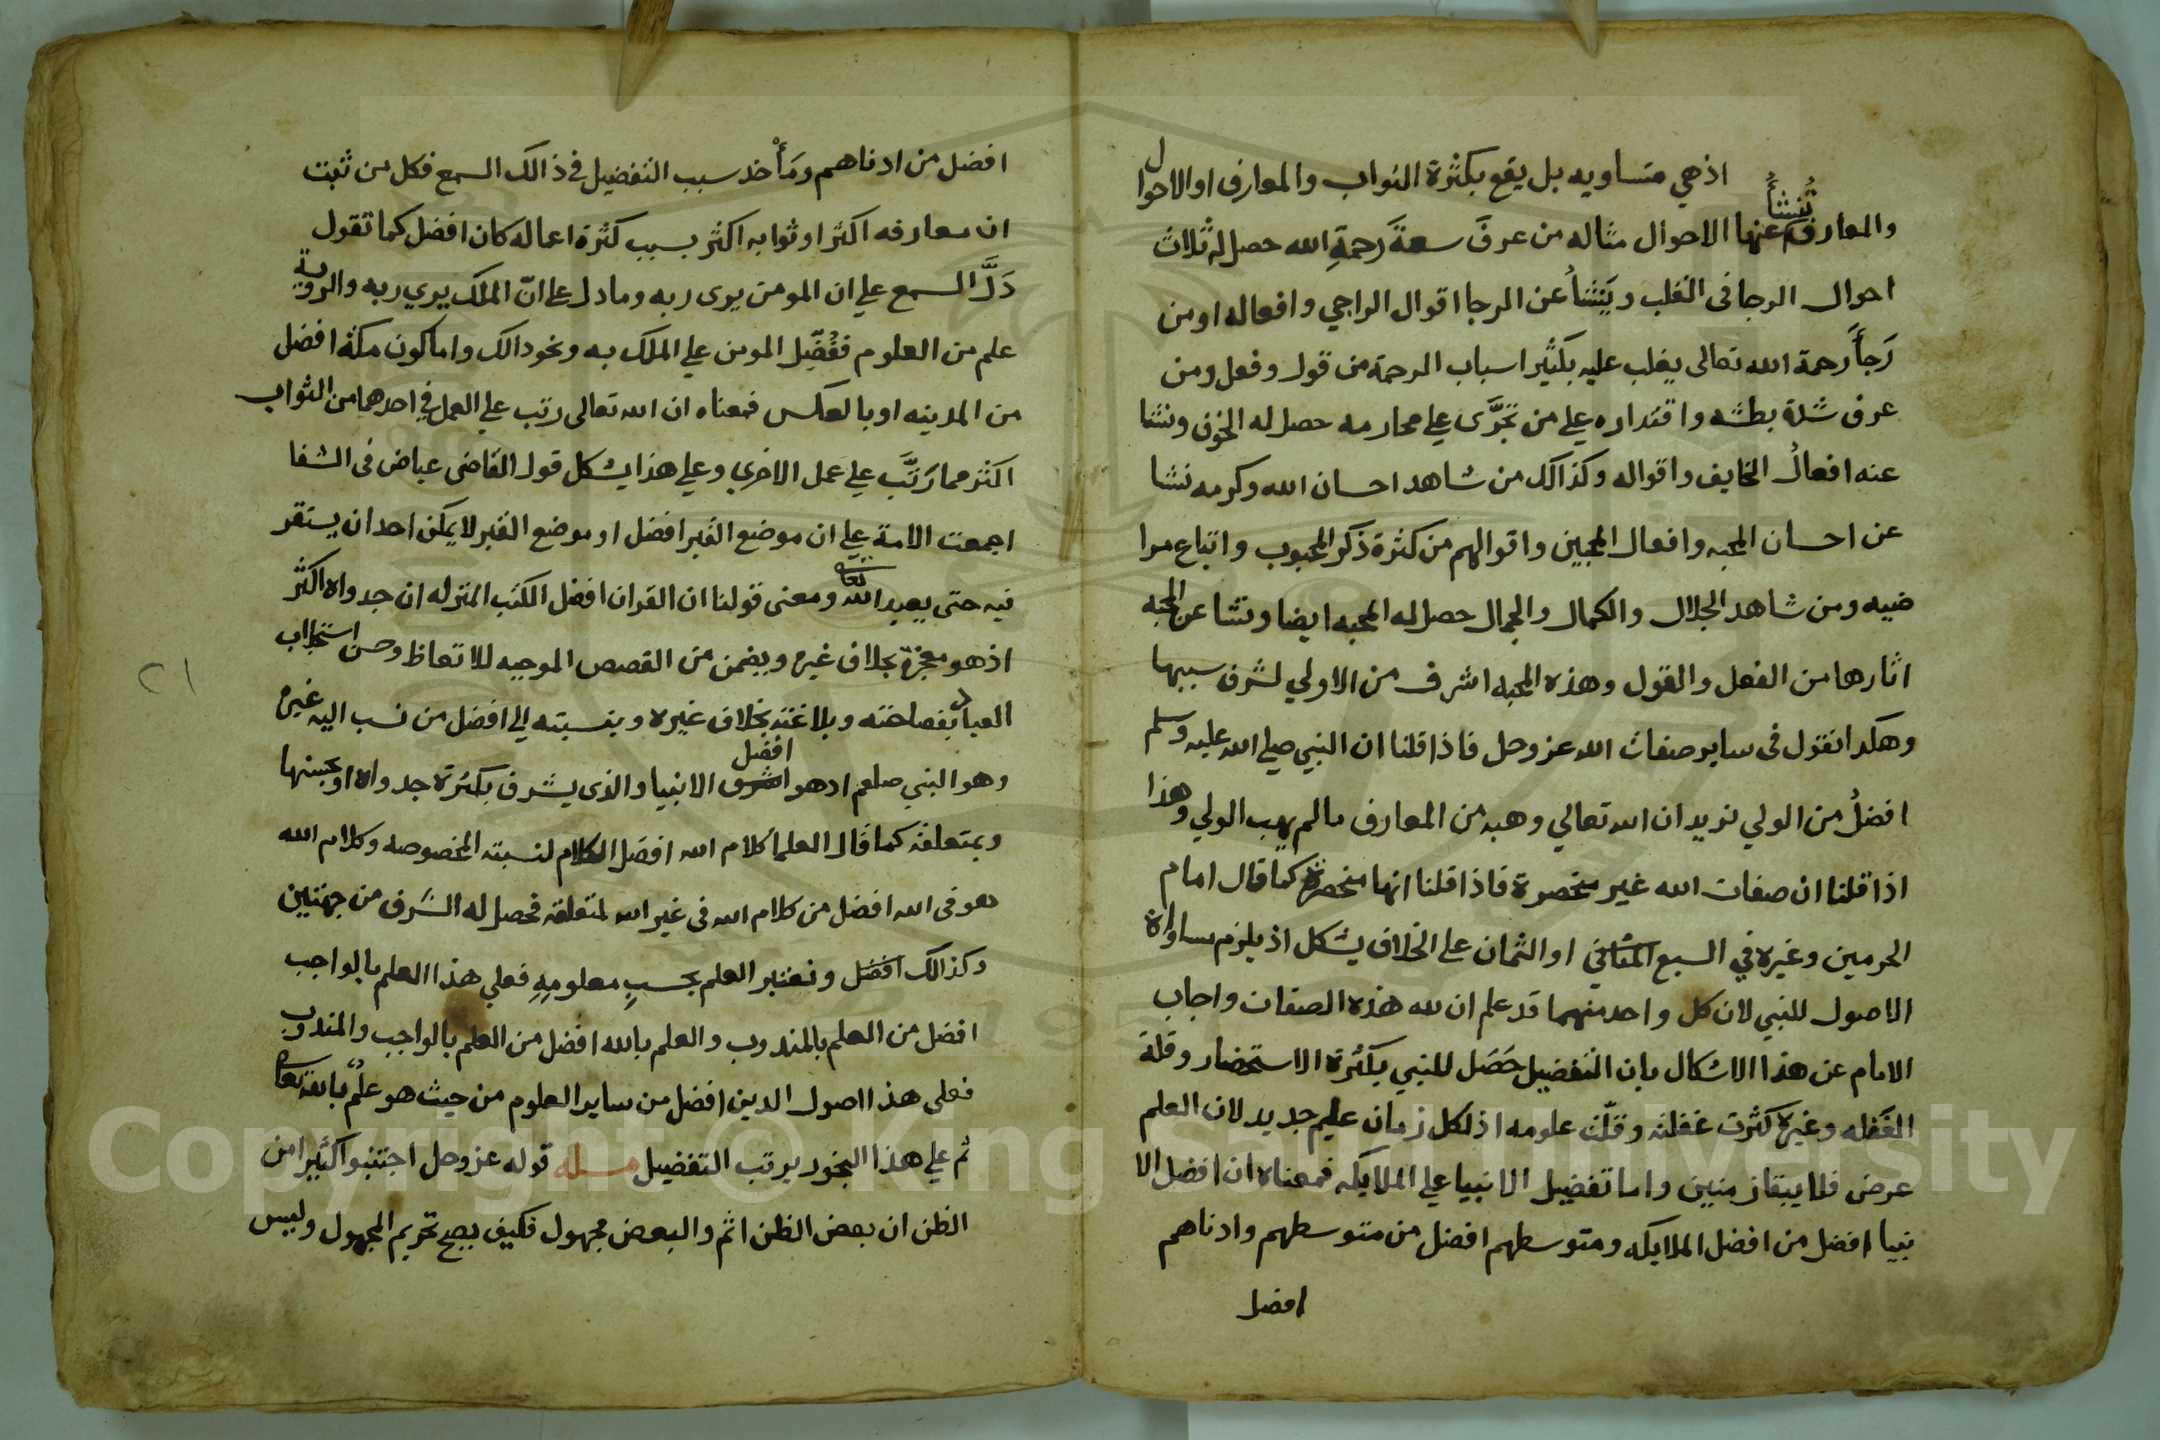 اذ هي متساويه بل يقع بكثرة الثواب والمعارف او الاحوال
والمعارف تُنشأُ عنها الاحوال مثاله من عرفَ سعةَ رحمةِ الله حصل له ثلاث
احوال الرجا فى القلب ويَنشأُ عن الرجا اقوال الراجي وافعاله او من
رَجأَ رحمة الله تعالى يغلب عليه بكثير اسباب الرحمة من قول وفعل ومن
عرف شدة بطشه واقتداره علي من تَجَرَّى علي محارمه حصل له الخوف ونشا
عنه افعالُ الخايف واقواله وكذالك من شاهد احسان الله وكرمه نشا
عن احسان المحبه وافعال المحبين واقوالهم من كثرة ذكر المحبوب واتباع مرا
ضيه ومن شاهد الجلال والكمال والجمال حصل له المحبه ايضا ونشا عن المحبه
اثارها من الفعل والقول وهذه المحبه اشرف من الاولي لشرف سببها
وهكدا نقول فى ساير صفات الله عز وجل فاذا قلنا ان النبي صلي الله عليه وسلم
افضلُ من الولي نريد ان الله تعالي وهبه من المعارف مالم يهب الولي وهذا
اذا قلنا ان صفات الله غير منحصرة فاذا قلنا انها منحصرة كما قال امام
الحرمين وغيره في السبع المثاني او الثمان على الخلاف يشكل اذ يلزم مساواة
الاصول للنبي لان كل واحد منهما قد علم ان لله هذه الصفات واجاب
الامام عن هذا الاشكال بان التفضيل حَصَل للنبي بكثرة الاستحضار وقلة
الغفله وغيره كثرت غفلته وقلّت علومه اذ لكل زمان علم جديد لان العلم
عرض فلا يبقا زمنين واما تفضيل الانبيا علي الملايكه فمعناه ان افضل الا
نبيا افضل من افضل الملايكه ومتوسطهم افضل من متوسطهم وادناهم
افضل
افضل من ادناهم ومَأْخد سبب التفضيل في ذالك السمع فكل من ثبت
ان معارفه اكثر او ثوابه اكثر بسبب كثرة اعماله كان افضل كما تقول
دَلَّ السمع علي ان المومن يرى ربه وما دل على انّ الملك يري ربه والروية
علم من العلوم ففُضِّل المومن علي الملك به ونحو دالك واما كون مكة افضل
من المدينه او بالعكس فمعناه ان الله تعالى رتب علي العمل في احدهما من الثواب
اكثر مما رَتَّبَ علي عمل الاخري وعلي هذا يشكل قول القاضى عياض فى الشفا
اجمعت الامة علي ان موضع القبر افضل او موضع القبر لا يمكن احد ان يستقر
فيه حتى يعبد الله تعالى ومعنى قولنا ان القران افضل الكتب المنزله ان جدواه اكثر
اذ هو معجزة بخلاف غيره ويضمن من القصص الموجبه للاتعاظ وحسن استجلاب
العباد بفصاحته وبلاغته بخلاف غيره وبنسبته الي افضل من نسب اليه غيره
وهو النبي صلعم اد هو اشرف افضل الانبيا والذى يشرف بكثرة جدواه او بحسنها
وبمتعلقه كما قال العلما كلام الله افضل الكلام لنسبته المخصوصه وكلام الله
هو فى الله افضل من كلام الله فى غير الله لمتعلقه فحصل له الشرف من جهتين
وكذالك افضل ونعتبر العلم بحسبِ معلومِهِ فعلي هذا العلم بالواجب
افضل من العلم بالمندوب والعلم بالله افضل من العلم بالواجب والمندوب
فعلى هذا اصول الدين افضل من ساير العلوم من حيث هو علمٌ بالله تعالى
ثم علي هذا النحو يرتب التفضيل مسله قوله عز وجل اجتنبوا كثيرا من
الظن ان بعض الظن اثم والبعض مجهول فكيف يصح تحريم المجهول وليس
٢١
Copyright © King Saud University